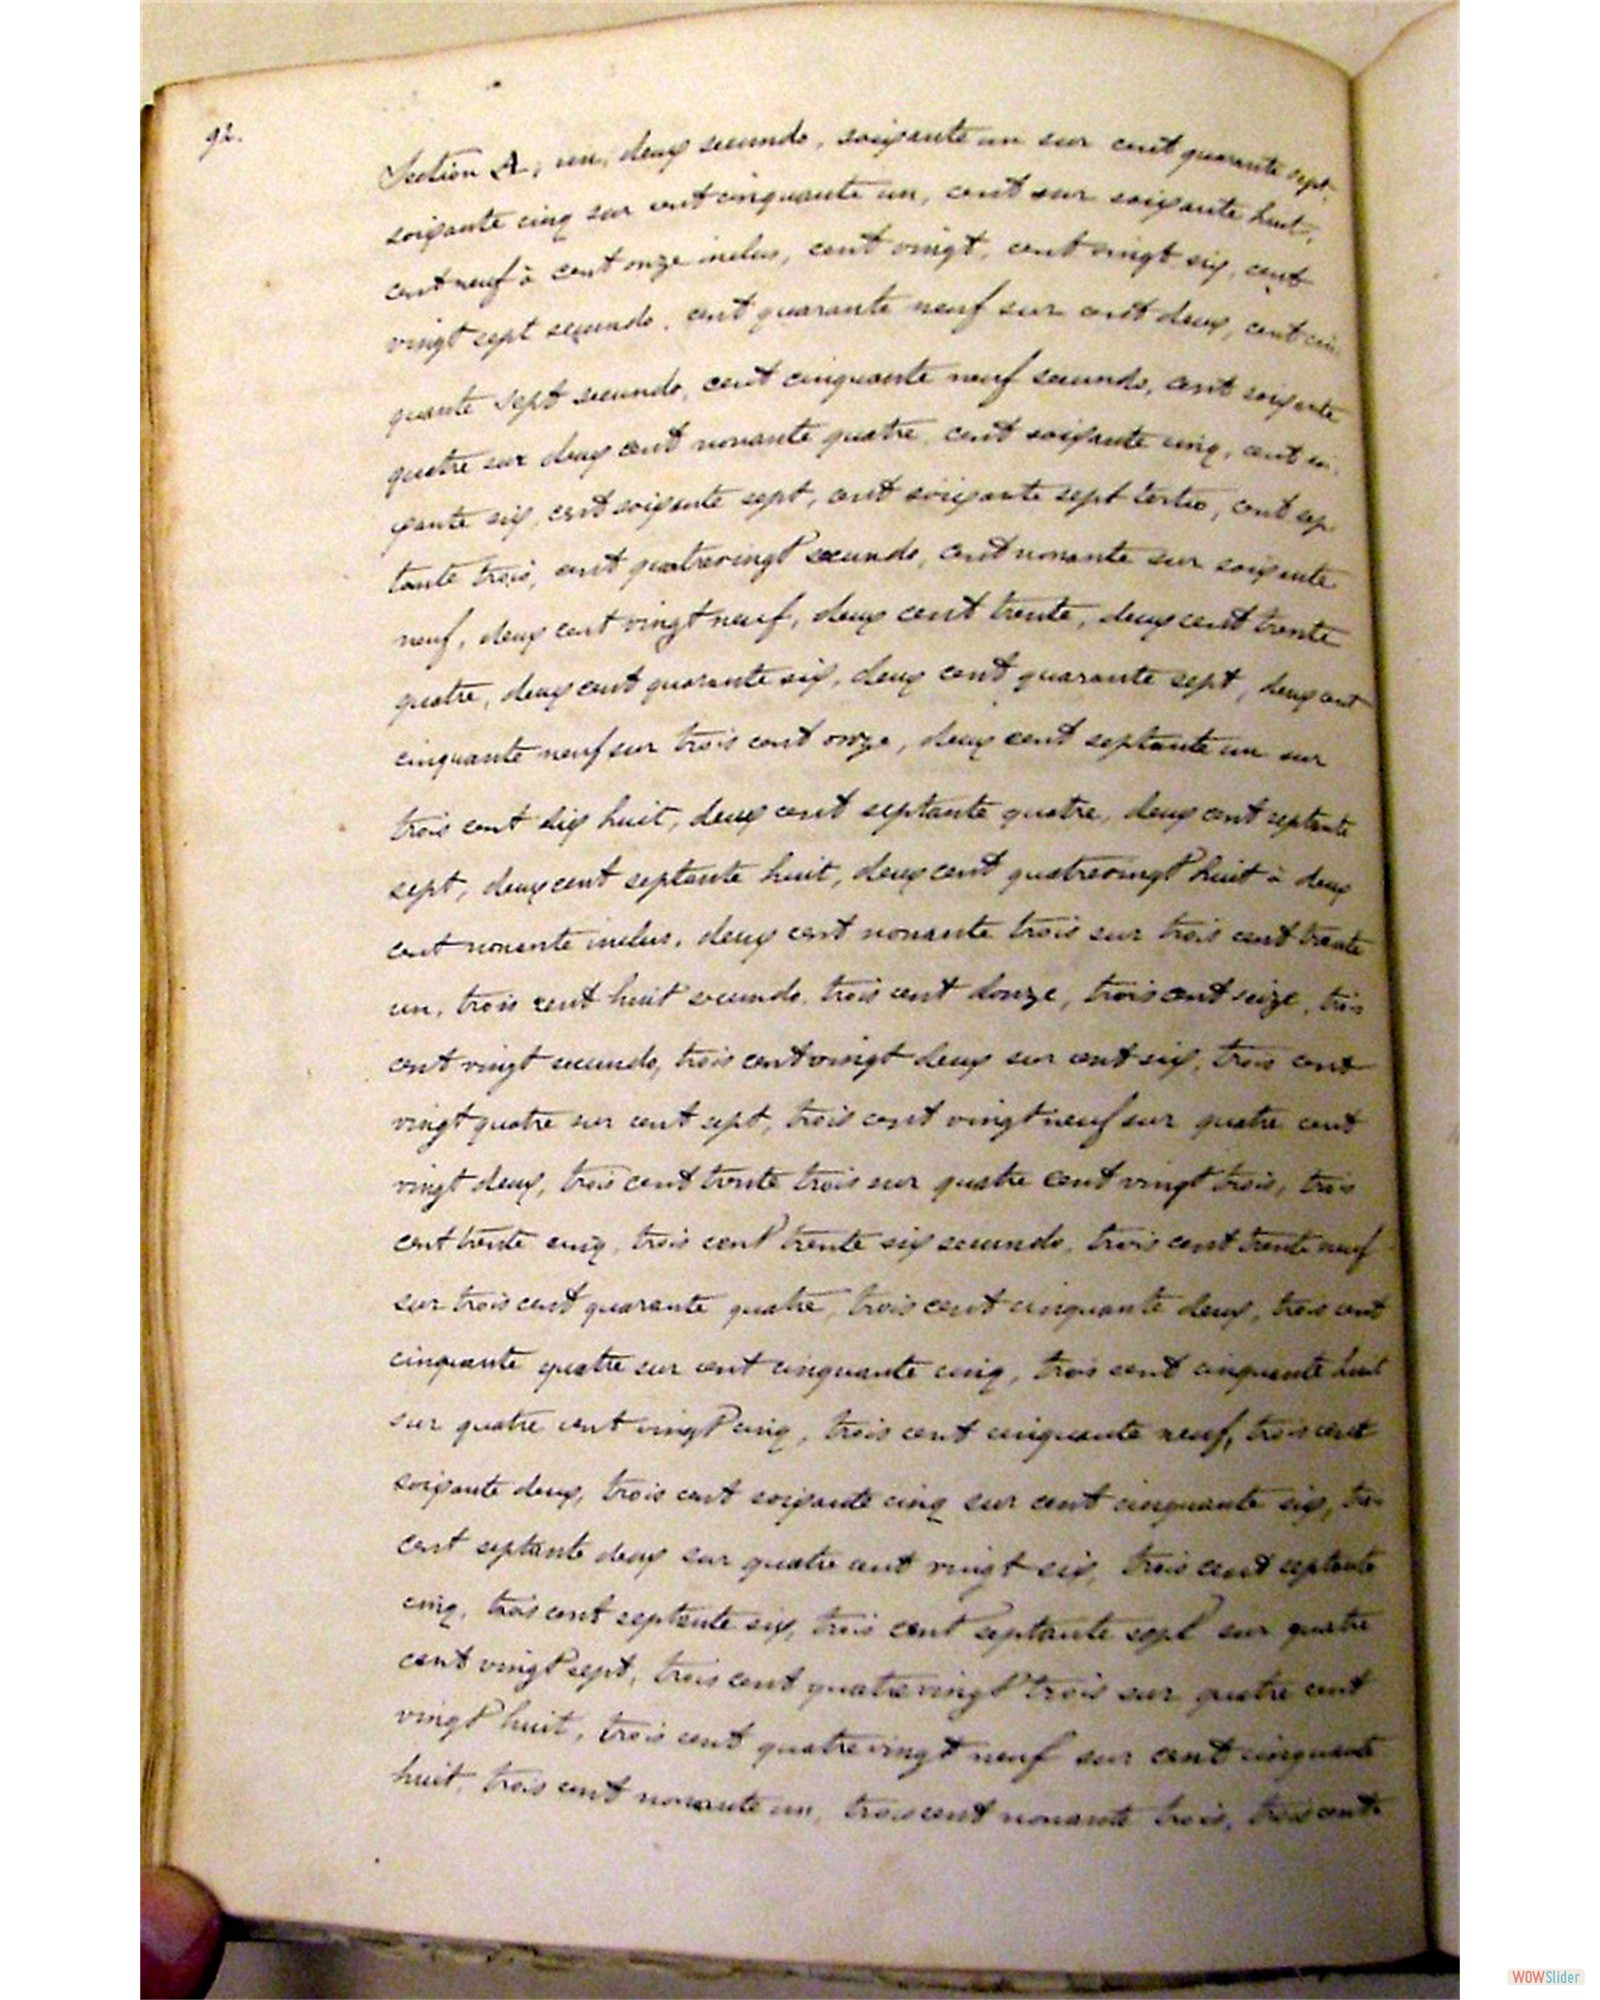 92.
Section A, un, deux secundo, soixante un sur cent quarante sept,
soixante cinq sur cent cinquante un, cent sur soixante huit,
cent neuf à cent onze inclus, cent vingt, cent vingt six, cent
vingt sept secundo, cent quarante neuf sur cent deux, cent cin
quante sept secundo, cent cinquante neuf secundo, cent soixante
quatre sur deux cent nonante quatre, cent soixante cinq, cent soi
xante six, cent soixante sept, cent soixante sept tertio, cent sep
tante trois, cent quatrevingt secundo, cent nonante sur soixante
neuf, deux cent vingt neuf, deux cent trente, deux cent trente
quatre, deux cent quarante six, deux cent quarante sept, deux cent
cinquante neuf sur trois cent onze, deux cent septante un sur
trois cent dix huit, deux cent septante quatre, deux cent septante
sept, deux cent septante huit, deux cent quatrevingt huit à deux
cent nonante inclus, deux cent nonante trois sur trois cent trente
un, trois cent huit secundo, trois cent douze, trois cent seize, trois
cent vingt secundo, trois cent vingt deux sur cent six, trois cent
vingt quatre sur cent sept, trois cent vingt neuf sur quatre cent
vingt deux, trois cent trente trois sur quatre cent vingt trois, trois
cent trente cinq, trois cent trente six secundo, trois cent trente neuf
sur trois cent quarante quatre, trois cent cinquante deux, trois cent
cinquante quatre sur cent cinquante cinq, trois cent cinquante huit
sur quatre cent vingt cinq, trois cent cinquante neuf, trois cent
soixante deux, trois cent soixante cinq sur cent cinquante six, trois
cent septante deux sur quatre cent vingt six, trois cent septante
cinq, trois cent septante six, trois cent septante sept sur quatre
cent vingt sept, trois cent quatrevingt trois sur quatre cent
vingt huit, trois cent quatrevingt neuf sur cent cinquante
huit, trois cent nonante un, trois cent nonante trois, trois cent
WOWSlider